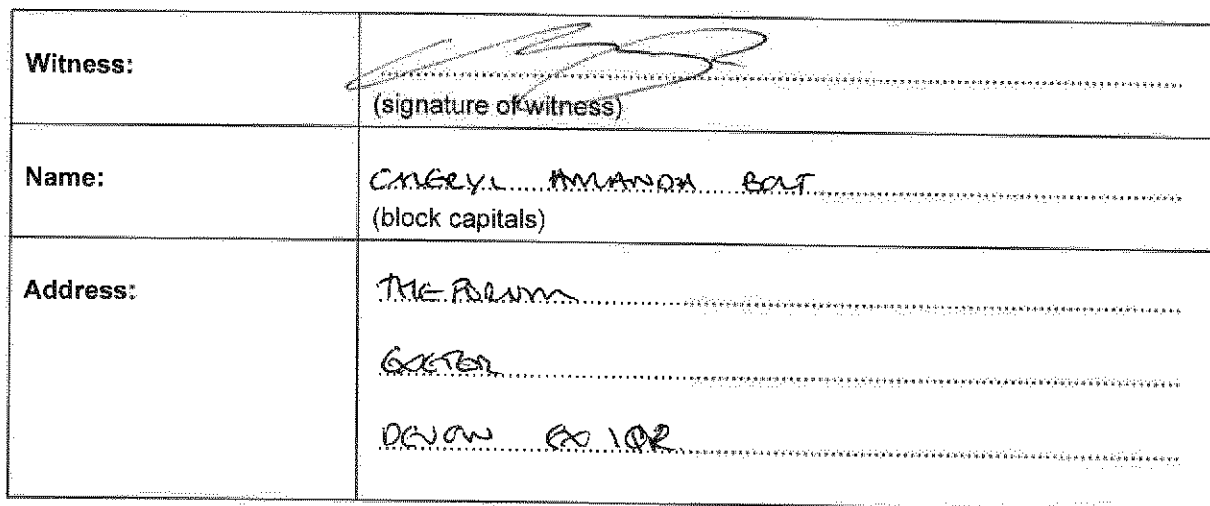 Witness:
(signature of witness)
Name:
CHERYL AMANDA BOLT
(block capitals)
Address:
THE FORUM
EXETER
DEVON EX1